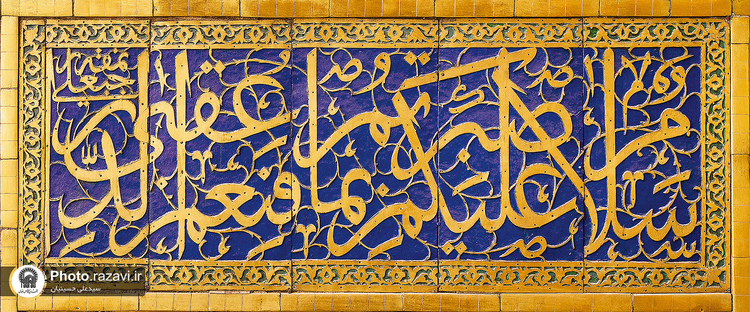 سلام عليكم بما صبرتم فنعم عقبى الدار
Photo.razavi.ir
سیدعلی حسینیان